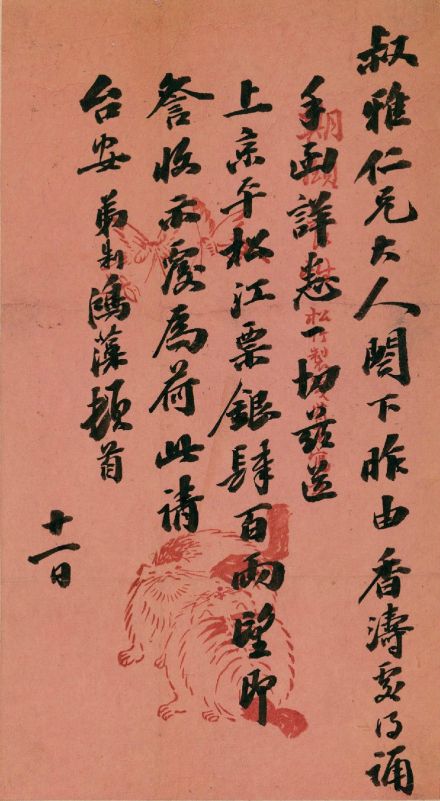 叔雅仁兄大人閣下昨由香濤處得誦
手函詳悉一切茲送
上京平松江票銀肆百兩望即
詧收示覆為荷此請
台安 弟制鴻藻頓首
十一日
期頤
松竹製